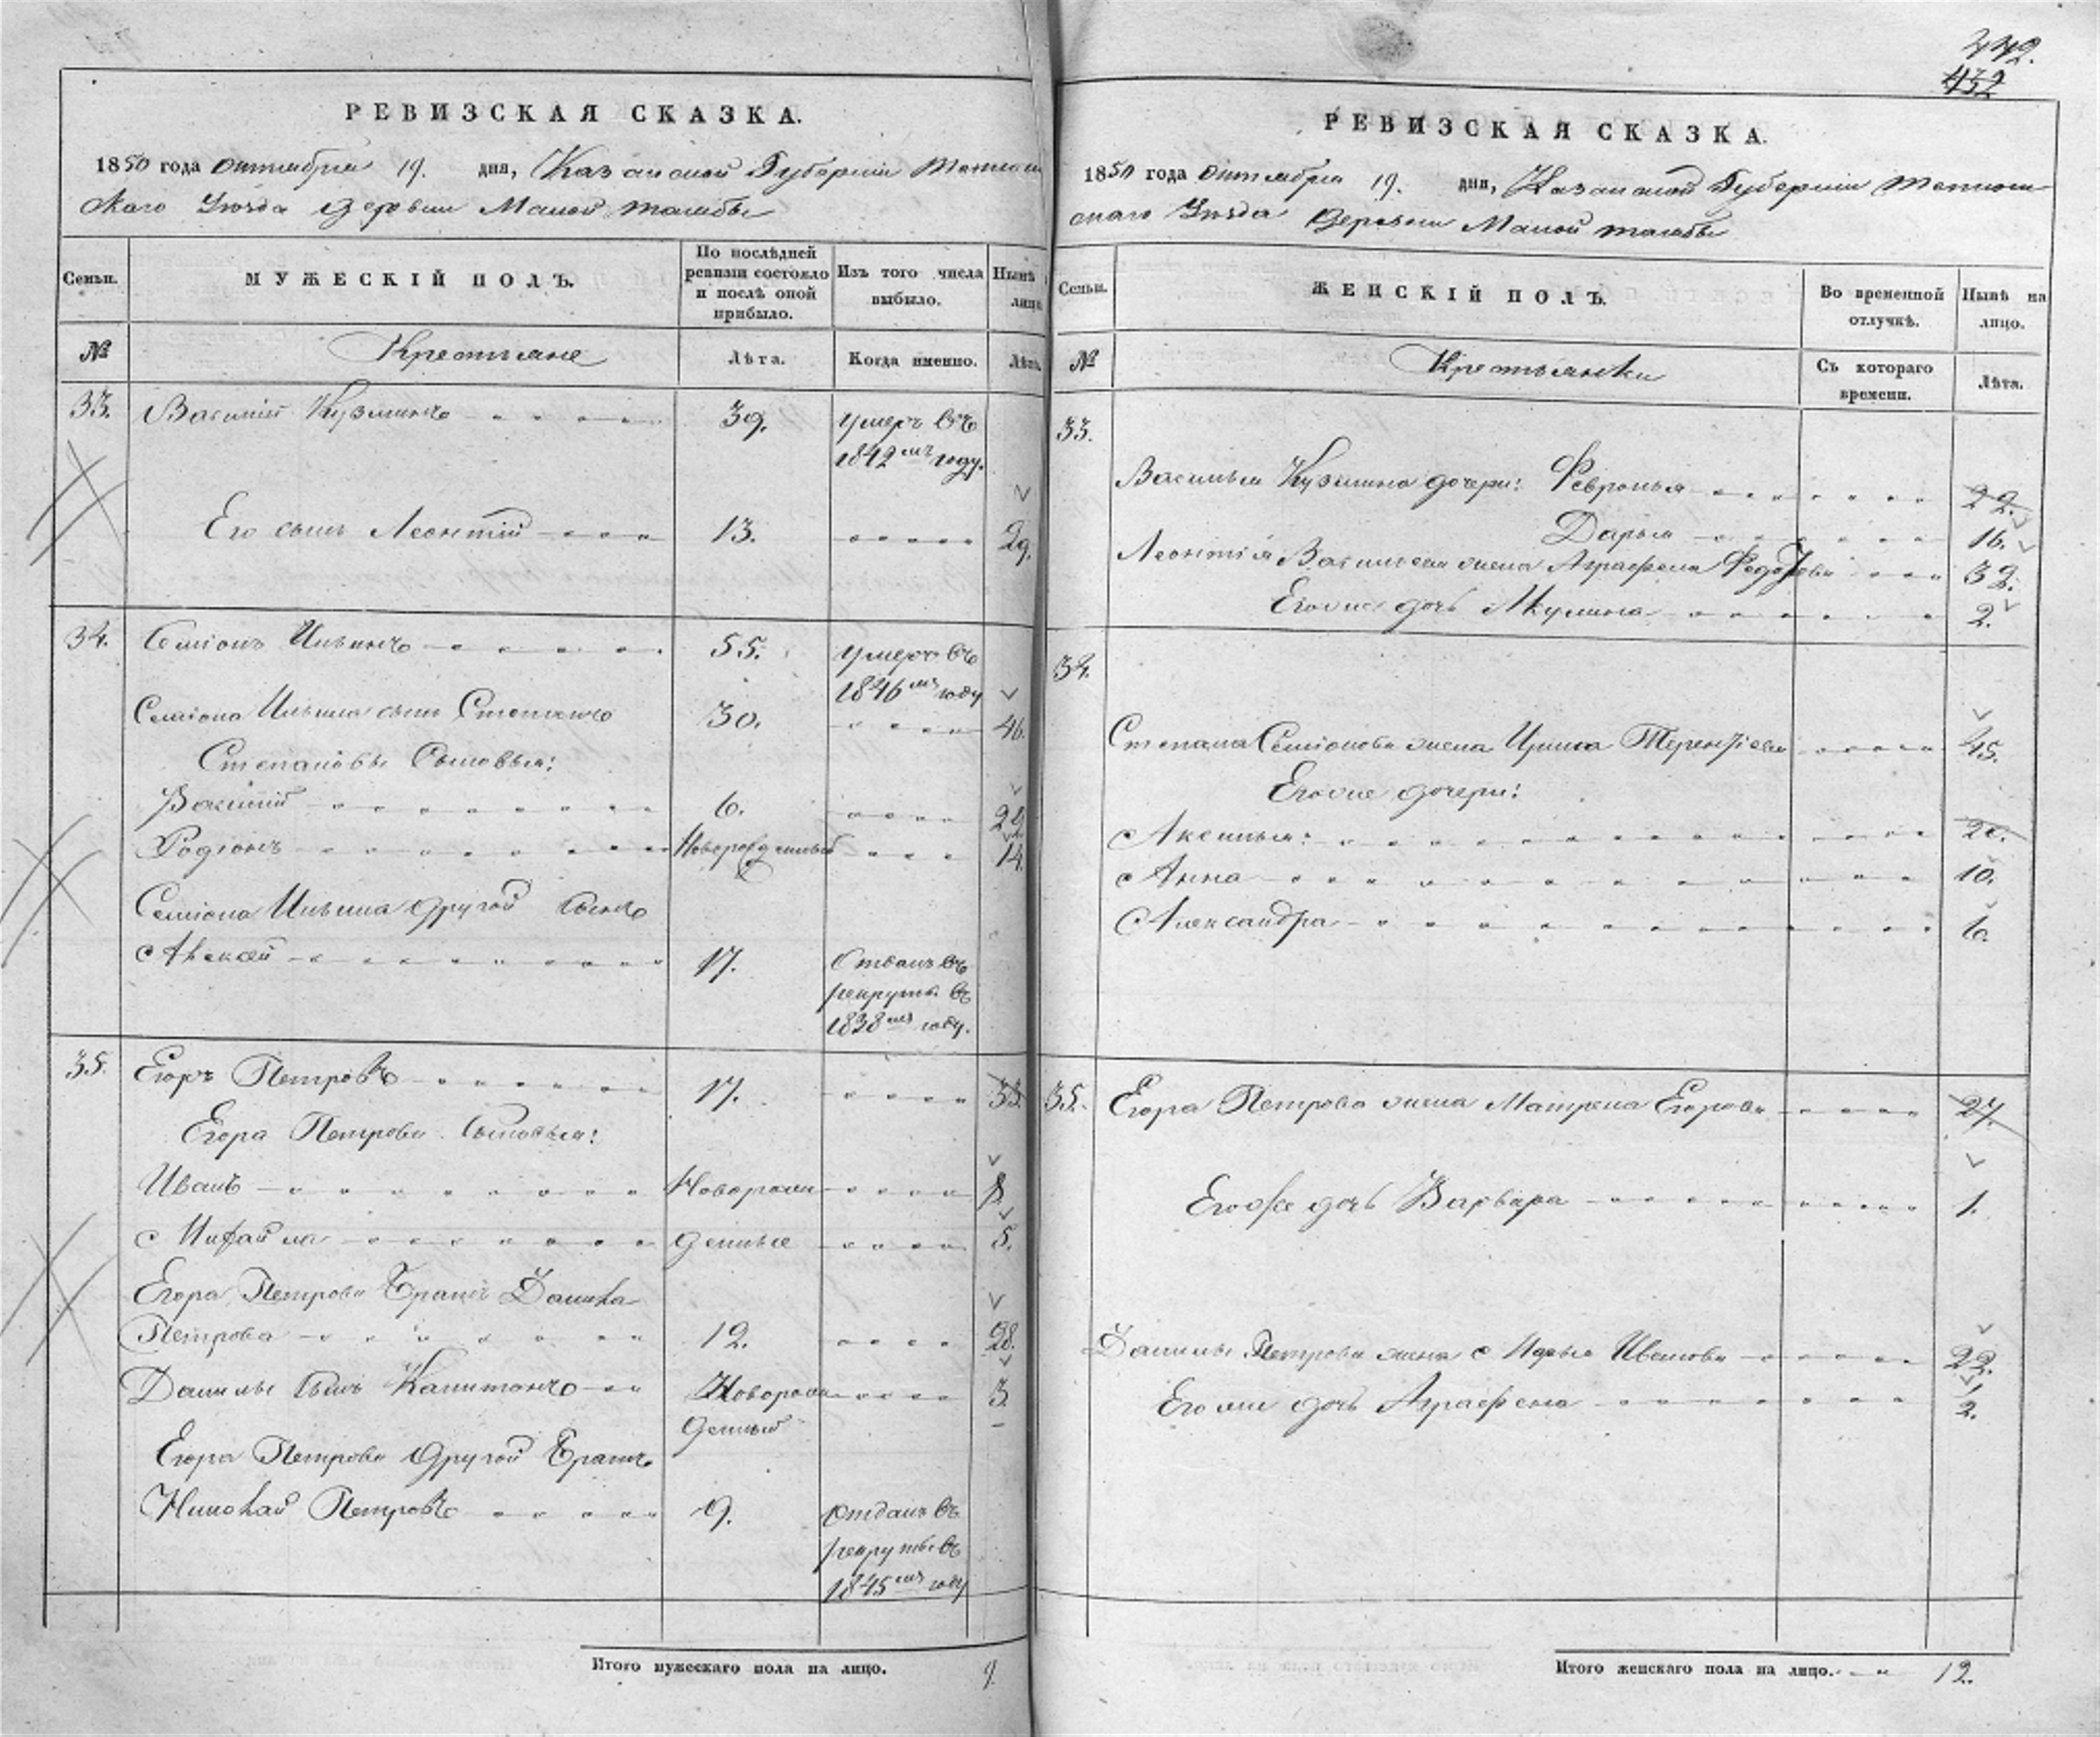 442.
432
РЕВИЗСКАЯ СКАЗКА.
1850 года октября 19. дня, Казанской Губернии Тетюш
скаго Уѣзда деревни Малой
Семьи.
МУЖЕСКІЙ ПОЛЪ.
По послѣдней ревизіи состояло и послѣ оной прибыло.
Изъ того числа выбыло.
Нынѣ лицо
№
Крестьяне
Лѣта.
Когда именно.
Лѣта
33. Василий Кузминъ 39. умеръ въ
1842мъ году.
Его сынъ Леонтий 13. 29.
34. Семіонъ Ильинъ 55. умеръ въ
1846мъ году
Семіона Ильина сынъ Степанъ 30. 46.
Степановы Сыновья:
Василий 6. 22
Родіонъ Новорожденный 14.
Семіона Ильина другой сынъ
Алексей 17. Отданъ въ
рекруты въ
1838мъ году.
35. Егоръ Петровъ 17. 33.
Егора Петрова Сыновья:
Иванъ Новорож 8.
Михайла денные 5.
Егора Петрова Братъ Данила
Петровъ 12. 28.
Данилы Сынъ Капитонъ Новорож 3.
денный
Егора Петрова другой Братъ
Николай Петровъ 9. отданъ въ
рекруты въ
1845мъ году
Итого мужескаго пола на лицо. 9.
РЕВИЗСКАЯ СКАЗКА.
1850 года октября 19. дня, Казанской Губернии Тетюш
скаго Уѣзда Деревни Малой
Семьи.
ЖЕНСКІЙ ПОЛЪ.
Во временной отлучкѣ.
Нынѣ на лицо.
№
Крестьянки
Съ котораго времени.
Лѣта.
33.
Василья Кузмина дочери: Февронья 22.
Дарья 16.
Леонтія Васильева жена Аграфена Федорова 32.
Егоже дочь Акулина 2.
34.
Степана Семіонова жена Ирина Терентіева 45.
Егоже дочери:
Аксинья: 20.
Анна 10.
Александра 6.
35. Егора Петрова жена Матрена Егорова 27.
Егоже дочь Варвара 1.
Данилы Петрова жена Марья Иванова 22.
Егоже дочь Аграфена 2.
Итого женскаго пола на лицо. 12.